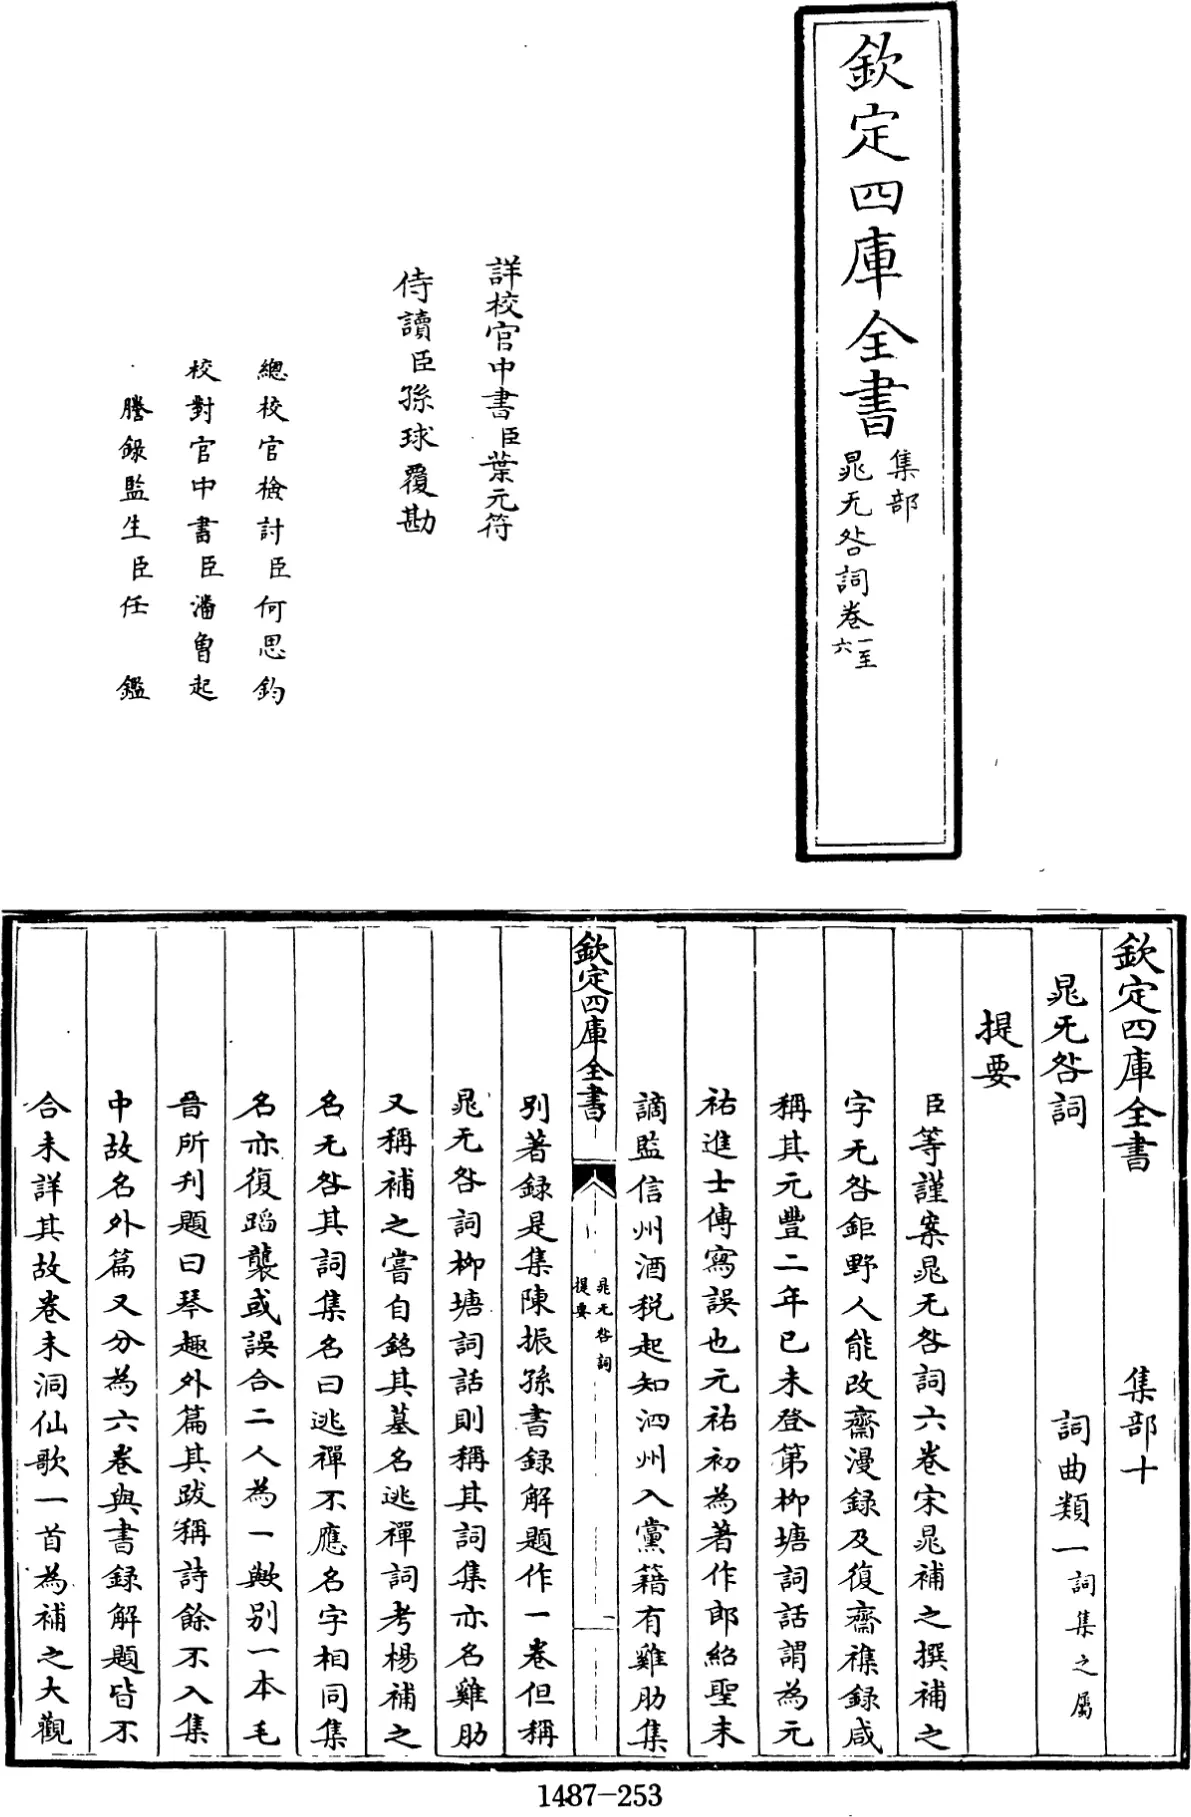 欽定四庫全書
集部
晁无咎詞卷一至六
詳校官中書臣葉元符
侍讀臣孫球覆勘
總校官檢討臣何思鈞
校對官中書臣潘曾起
謄錄監生臣任鑑
欽定四庫全書 集部十
晁无咎詞 詞曲類一 詞集之屬
提要
臣等謹案晁无咎詞六卷宋晁補之撰補之
字无咎鉅野人能改齋漫録及復齋襍録咸
稱其元豐二年己未登第柳塘詞話謂為元
祐進士傳寫誤也元祐初為著作郎紹聖末
謫監信州酒税起知泗州入黨籍有雞肋集
欽定四庫全書
晁无咎詞
提要
二
別著録是集陳振孫書録解題作一卷但稱
晁无咎詞柳塘詞話則稱其詞集亦名雞肋
又稱補之嘗自銘其墓名逃禪詞考楊補之
名无咎其詞集名曰逃禪不應名字相同集
名亦復蹈襲或誤合二人為一歟別一本毛
晉所刋題曰琴趣外篇其跋稱詩餘不入集
中故名外篇又分為六卷與書録解題皆不
合未詳其故卷末洞仙歌一首為補之大觀
1487-253